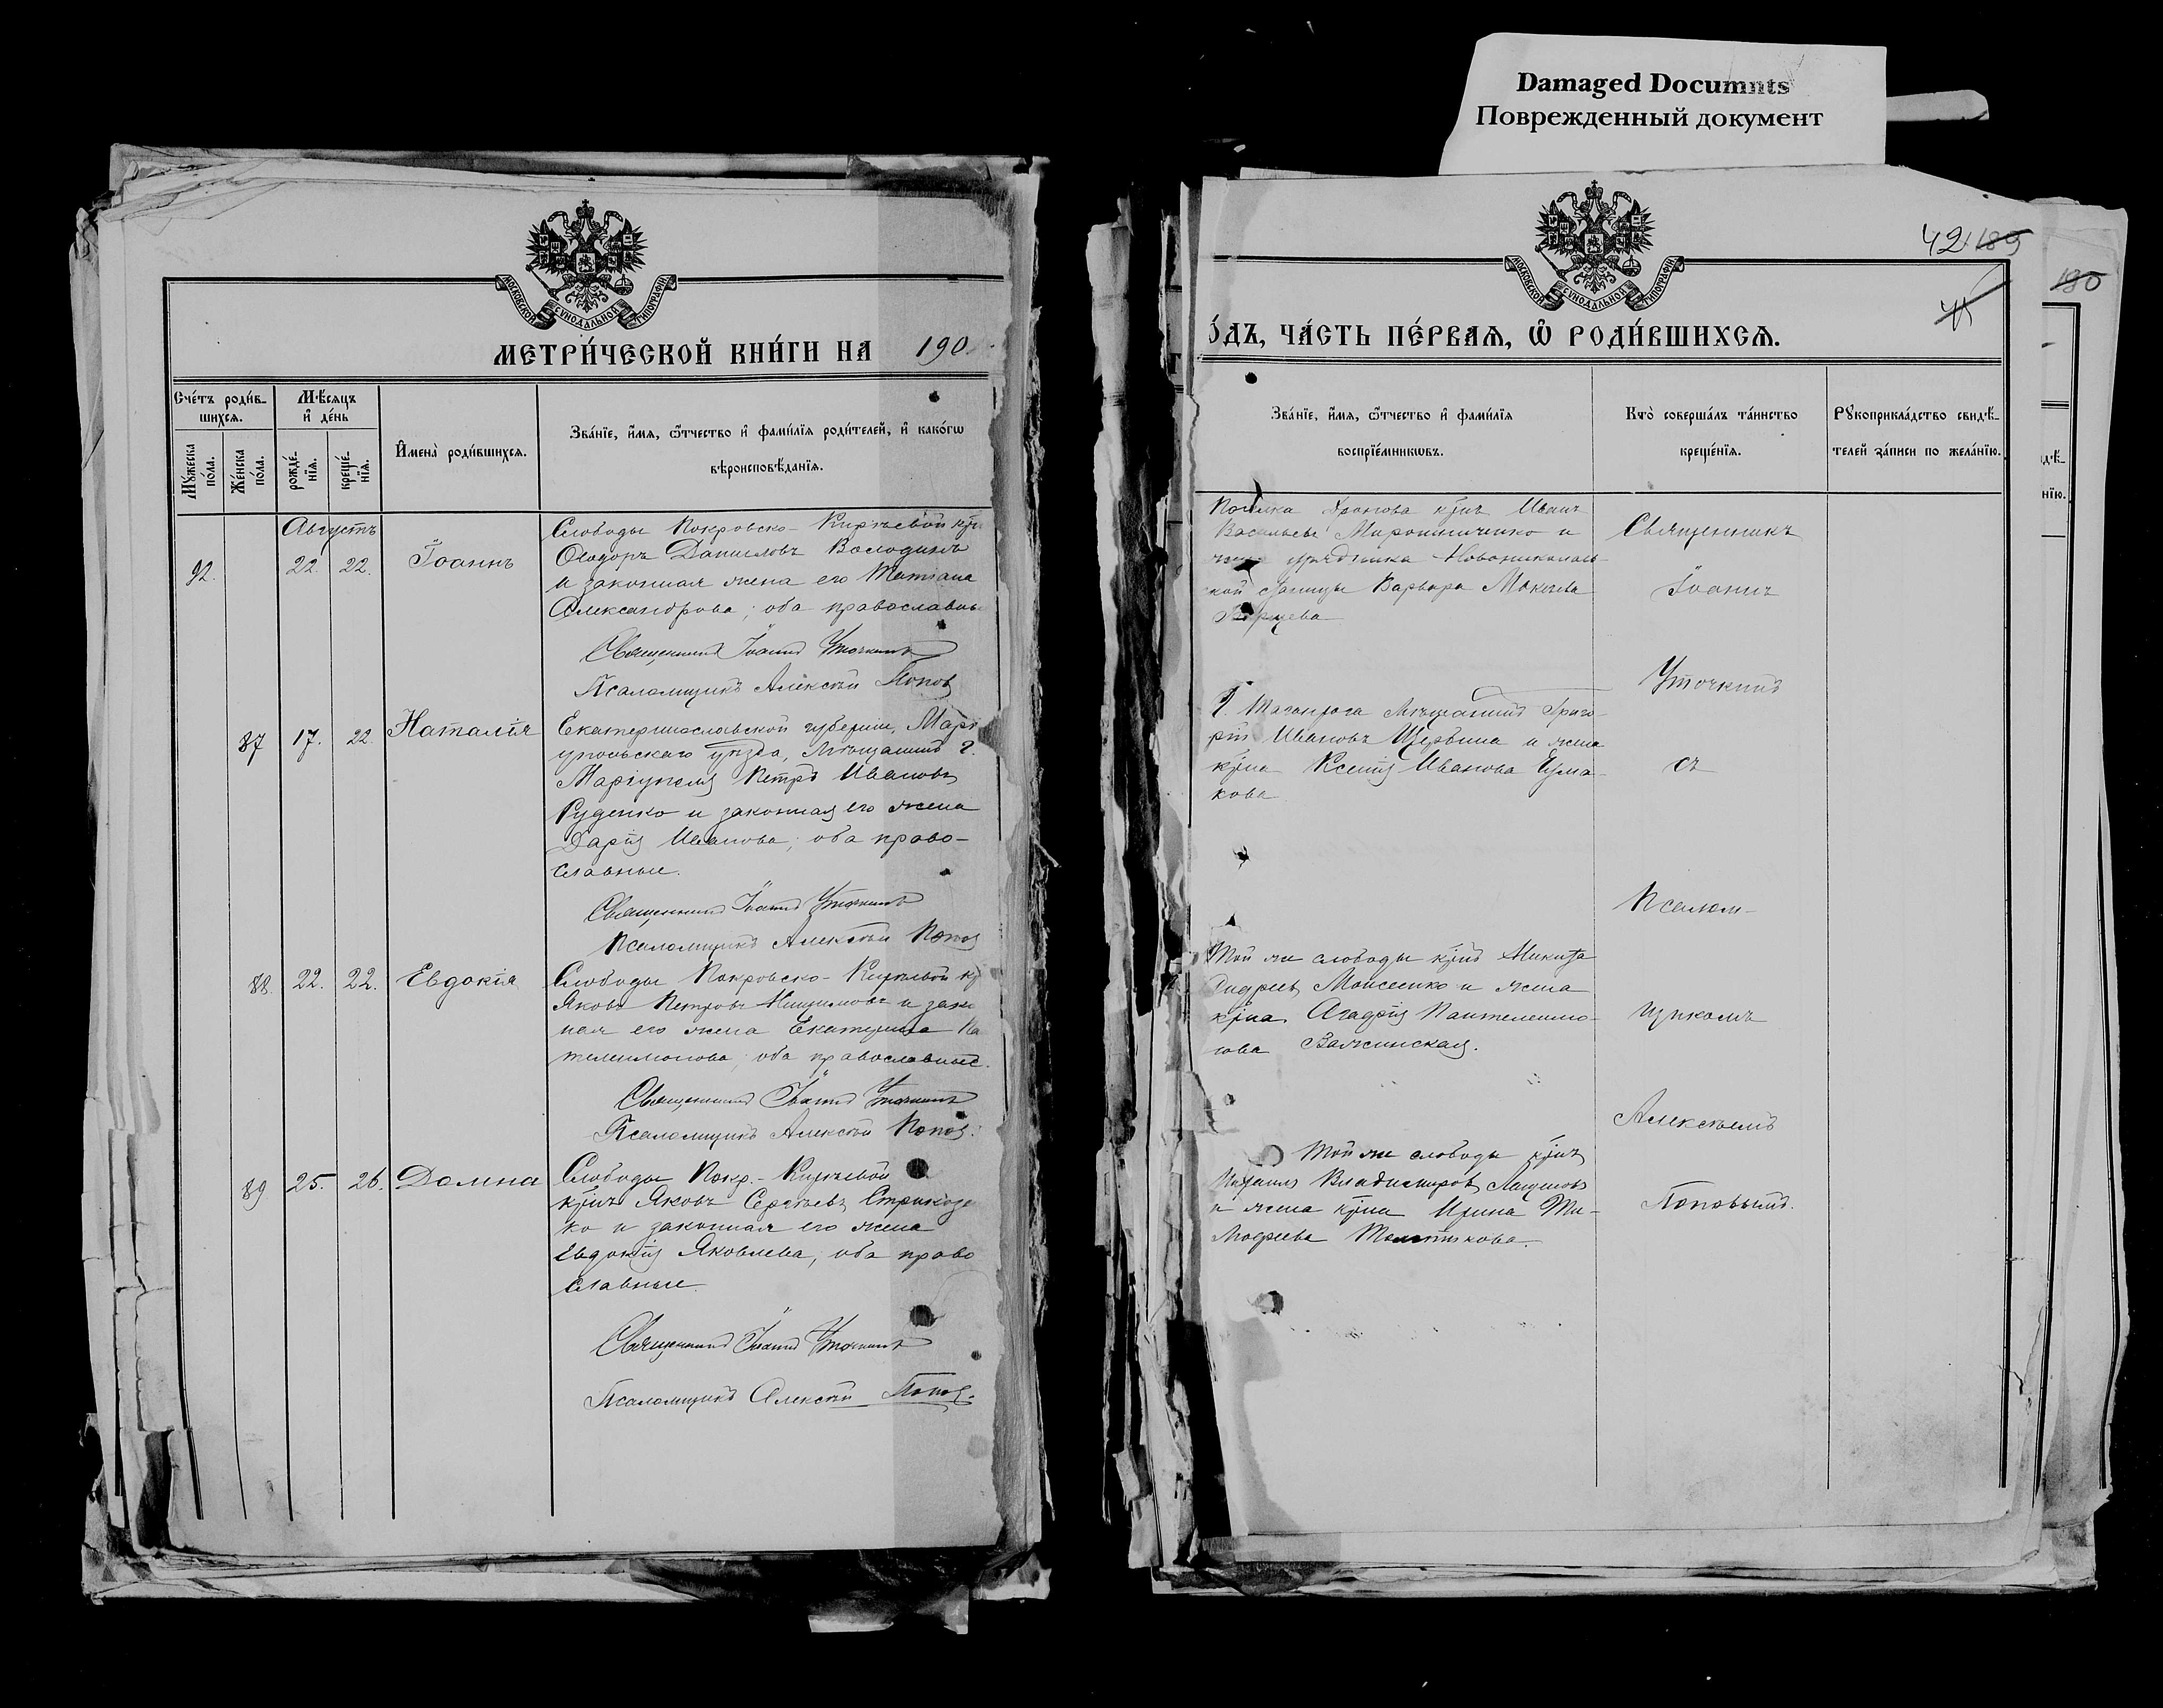 Damaged Documnts
Поврежденный документ
МОСКОВСКОЙ СѴНОДАЛЬНОЙ ТИПОГРАФІИ
МЕТРИ́ЧЕСКОЙ КНИ́ГИ НА 190
Сче́тъ роди́в-
шихся.
Мѣ́сяцъ
и де́нь
Му́жеска по́ла.
Же́нска по́ла.
рожде́-
нїя.
креще́-
нїя.
Имена̀ роди́вшихся.
Зва́нїе, и́мя, ѿчество и фами́лїя роди́телей, и како́гѡ
вѣроисповѣ́данїя.
Августъ
92. 22. 22. Іоаннъ
Слободы Покровско-Кирѣевой
Ѳеодоръ Даниловъ Володинъ
и законная жена его Татіана
Александрова; оба православны
Священникъ Іоаннъ Уточкинъ
Псаломщикъ Алексѣй Попов
87 17. 22. Наталія
Екатеринославской губерніи, Марі
упольскаго уѣзда, мѣщанинъ г.
Маріуполя Петръ Ивановъ
Руденко и законная его жена
Дарія Иванова; оба право-
славные.
Священникъ Іоаннъ Уточкинъ
Псаломщикъ Алексѣй Попов
88. 22. 22. Евдокія
Слободы Покровско-Кирѣевой кр
Яковъ Петровъ и зако
ная его жена Екатерина Па
телеимонова; оба православные.
Священникъ Іоаннъ Уточкинъ
Псаломщикъ Алексѣй Попов.
89 25. 26. Домна
Слободы Покр.-Кирѣевой
крнъ Яковъ Сергѣевъ
ко и законная его жена
Евдокія Яковлева, оба право
славные.
Священникъ Іоаннъ Уточкинъ
Псаломщикъ Алексѣй Попов.
42 189
180
МОСКОВСКОЙ СѴНОДАЛЬНОЙ ТИПОГРАФІИ
О́ДЪ, ЧА́СТЬ ПЕ́РВАЯ, Ѡ҆ РОДИ́ВШИХСЯ.
Зва́нїе, и́мя, ѿчество и фами́лїя
воспрїе́мникѡвъ.
Кто̀ соверша́лъ та́инство
креще́нїя.
Рꙋкоприкла́дство свидѣ́-
телей за́писи по жела́нїю.
Поселка крнъ Иванъ
Васильевъ Мирошниченко и
урядника Новониколаев-
ской станицы Варвара Мокіева
г. Таганрога мѣщанинъ Григо-
рій Ивановъ Щербина и жена
крна Ксенія Иванова Ерма-
кова
Той же слободы крнъ Никита
Андреевъ Моисеенко и жена
крна Агафія Пантелеимо-
нова
Той же слободы крнъ
Михаилъ Владиміровъ
и жена крна Ирина Ти-
мофеева
Священникъ
Іоаннъ
Уточкинъ
съ
Псалом-
щикомъ
Алексѣемъ
Поповымъ.